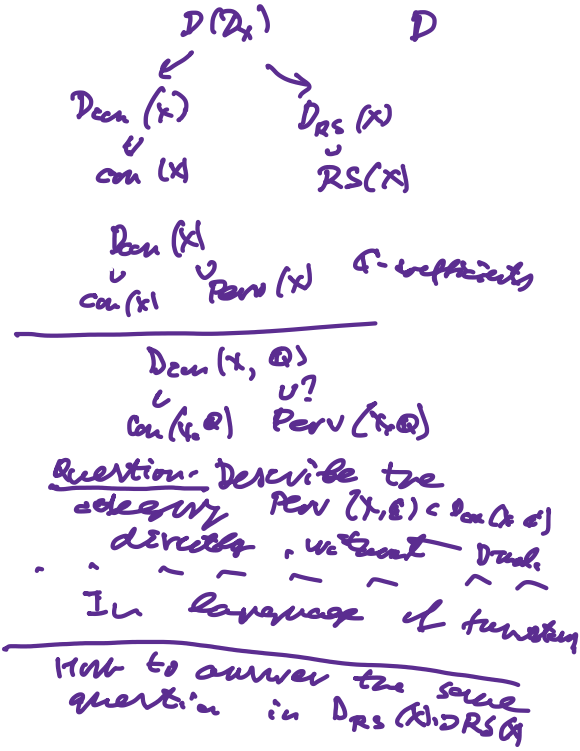 D(D_X) D
D_con(X) D_RS(X)
∪ ∪
con(X) RS(X)
D_con(X)
∪ ∪
con(X) Perv(X) ℂ-coefficients
D_con(X, ℚ)
∪ ∪?
Con(X, ℚ) Perv(X, ℚ)
Question. Describe the
category Perv(X, ℂ) ⊂ D_con(X, ℂ)
directly, without D-mod.
In language of
How to answer the same
question in D_RS(X) ⊃ RS(X)